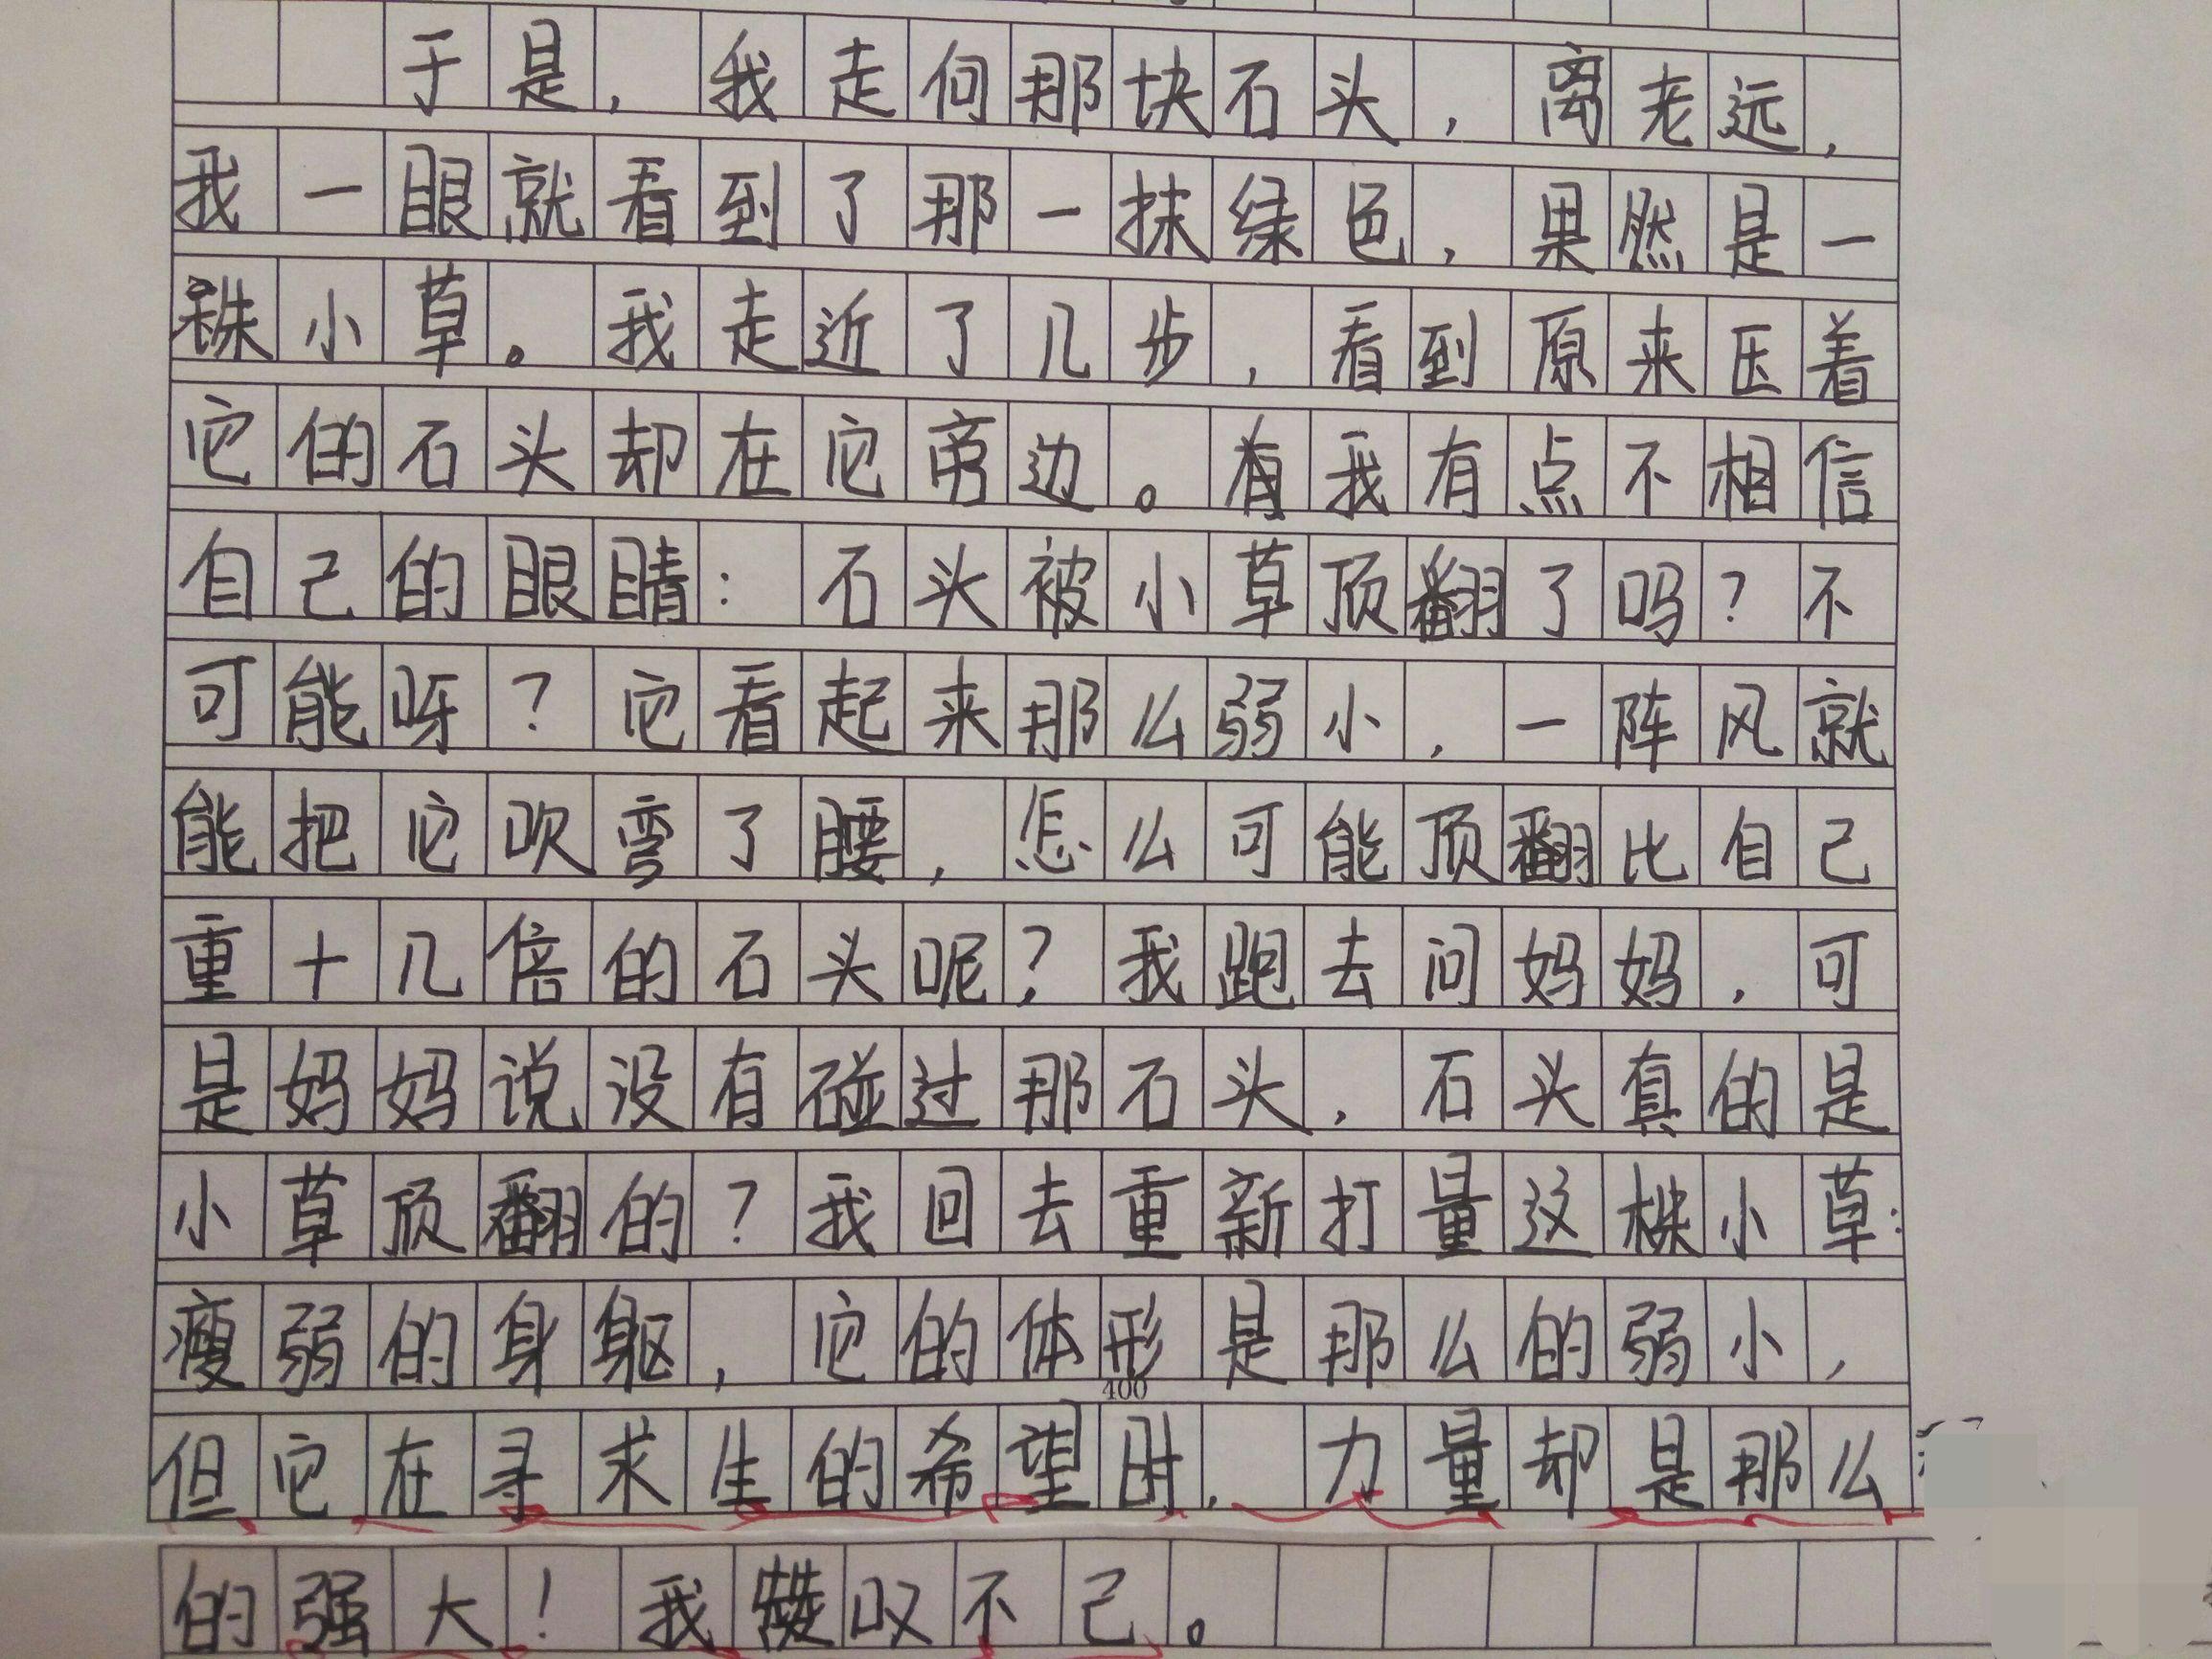 于是，我走向那块石头，离老远，
我一眼就看到了那一抹绿色，果然是一
株小草。我走近了几步，看到原来压着
它的石头却在它旁边。我有点不相信
自己的眼睛：石头被小草顶翻了吗？不
可能呀？它看起来那么弱小，一阵风就
能把它吹弯了腰，怎么可能顶翻比自己
重十几倍的石头呢？我跑去问妈妈，可
是妈妈说没有碰过那石头，石头真的是
小草顶翻的？我回去重新打量这株小草：
瘦弱的身躯，它的体形是那么的弱小，
400
但它在寻求生的希望时，力量却是那么
的强大！我叹不己。